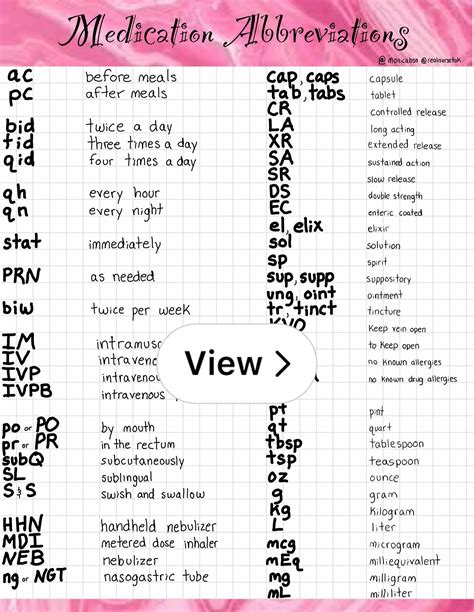 Medication Abbreviations
@monicabsn @realnursetok
ac before meals
pc after meals
bid twice a day
tid three times a day
qid four times a day
qh every hour
qn every night
stat immediately
PRN as needed
biw twice per week
IM
IV
IVP
IVPB intravenous
po or PO by mouth
pr or PR in the rectum
subQ subcutaneously
SL sublingual
S&S swish and swallow
HHN handheld nebulizer
MDI metered dose inhaler
NEB nebulizer
ng or NGT nasogastric tube
cap, caps capsule
tab, tabs tablet
CR controlled release
LA long acting
XR extended release
SA sustained action
SR slow release
DS double strength
EC enteric coated
el, elix elixir
sol solution
sp spirit
sup, supp suppository
ung, oint ointment
tr, tinct tincture
KVO to keep vein open
to keep open
no known allergies
no known drug allergies
View >
pt pint
qt quart
tbsp tablespoon
tsp teaspoon
oz ounce
g gram
Kg Kilogram
L liter
mcg microgram
mEq milliequivalent
mg milligram
mL milliliter